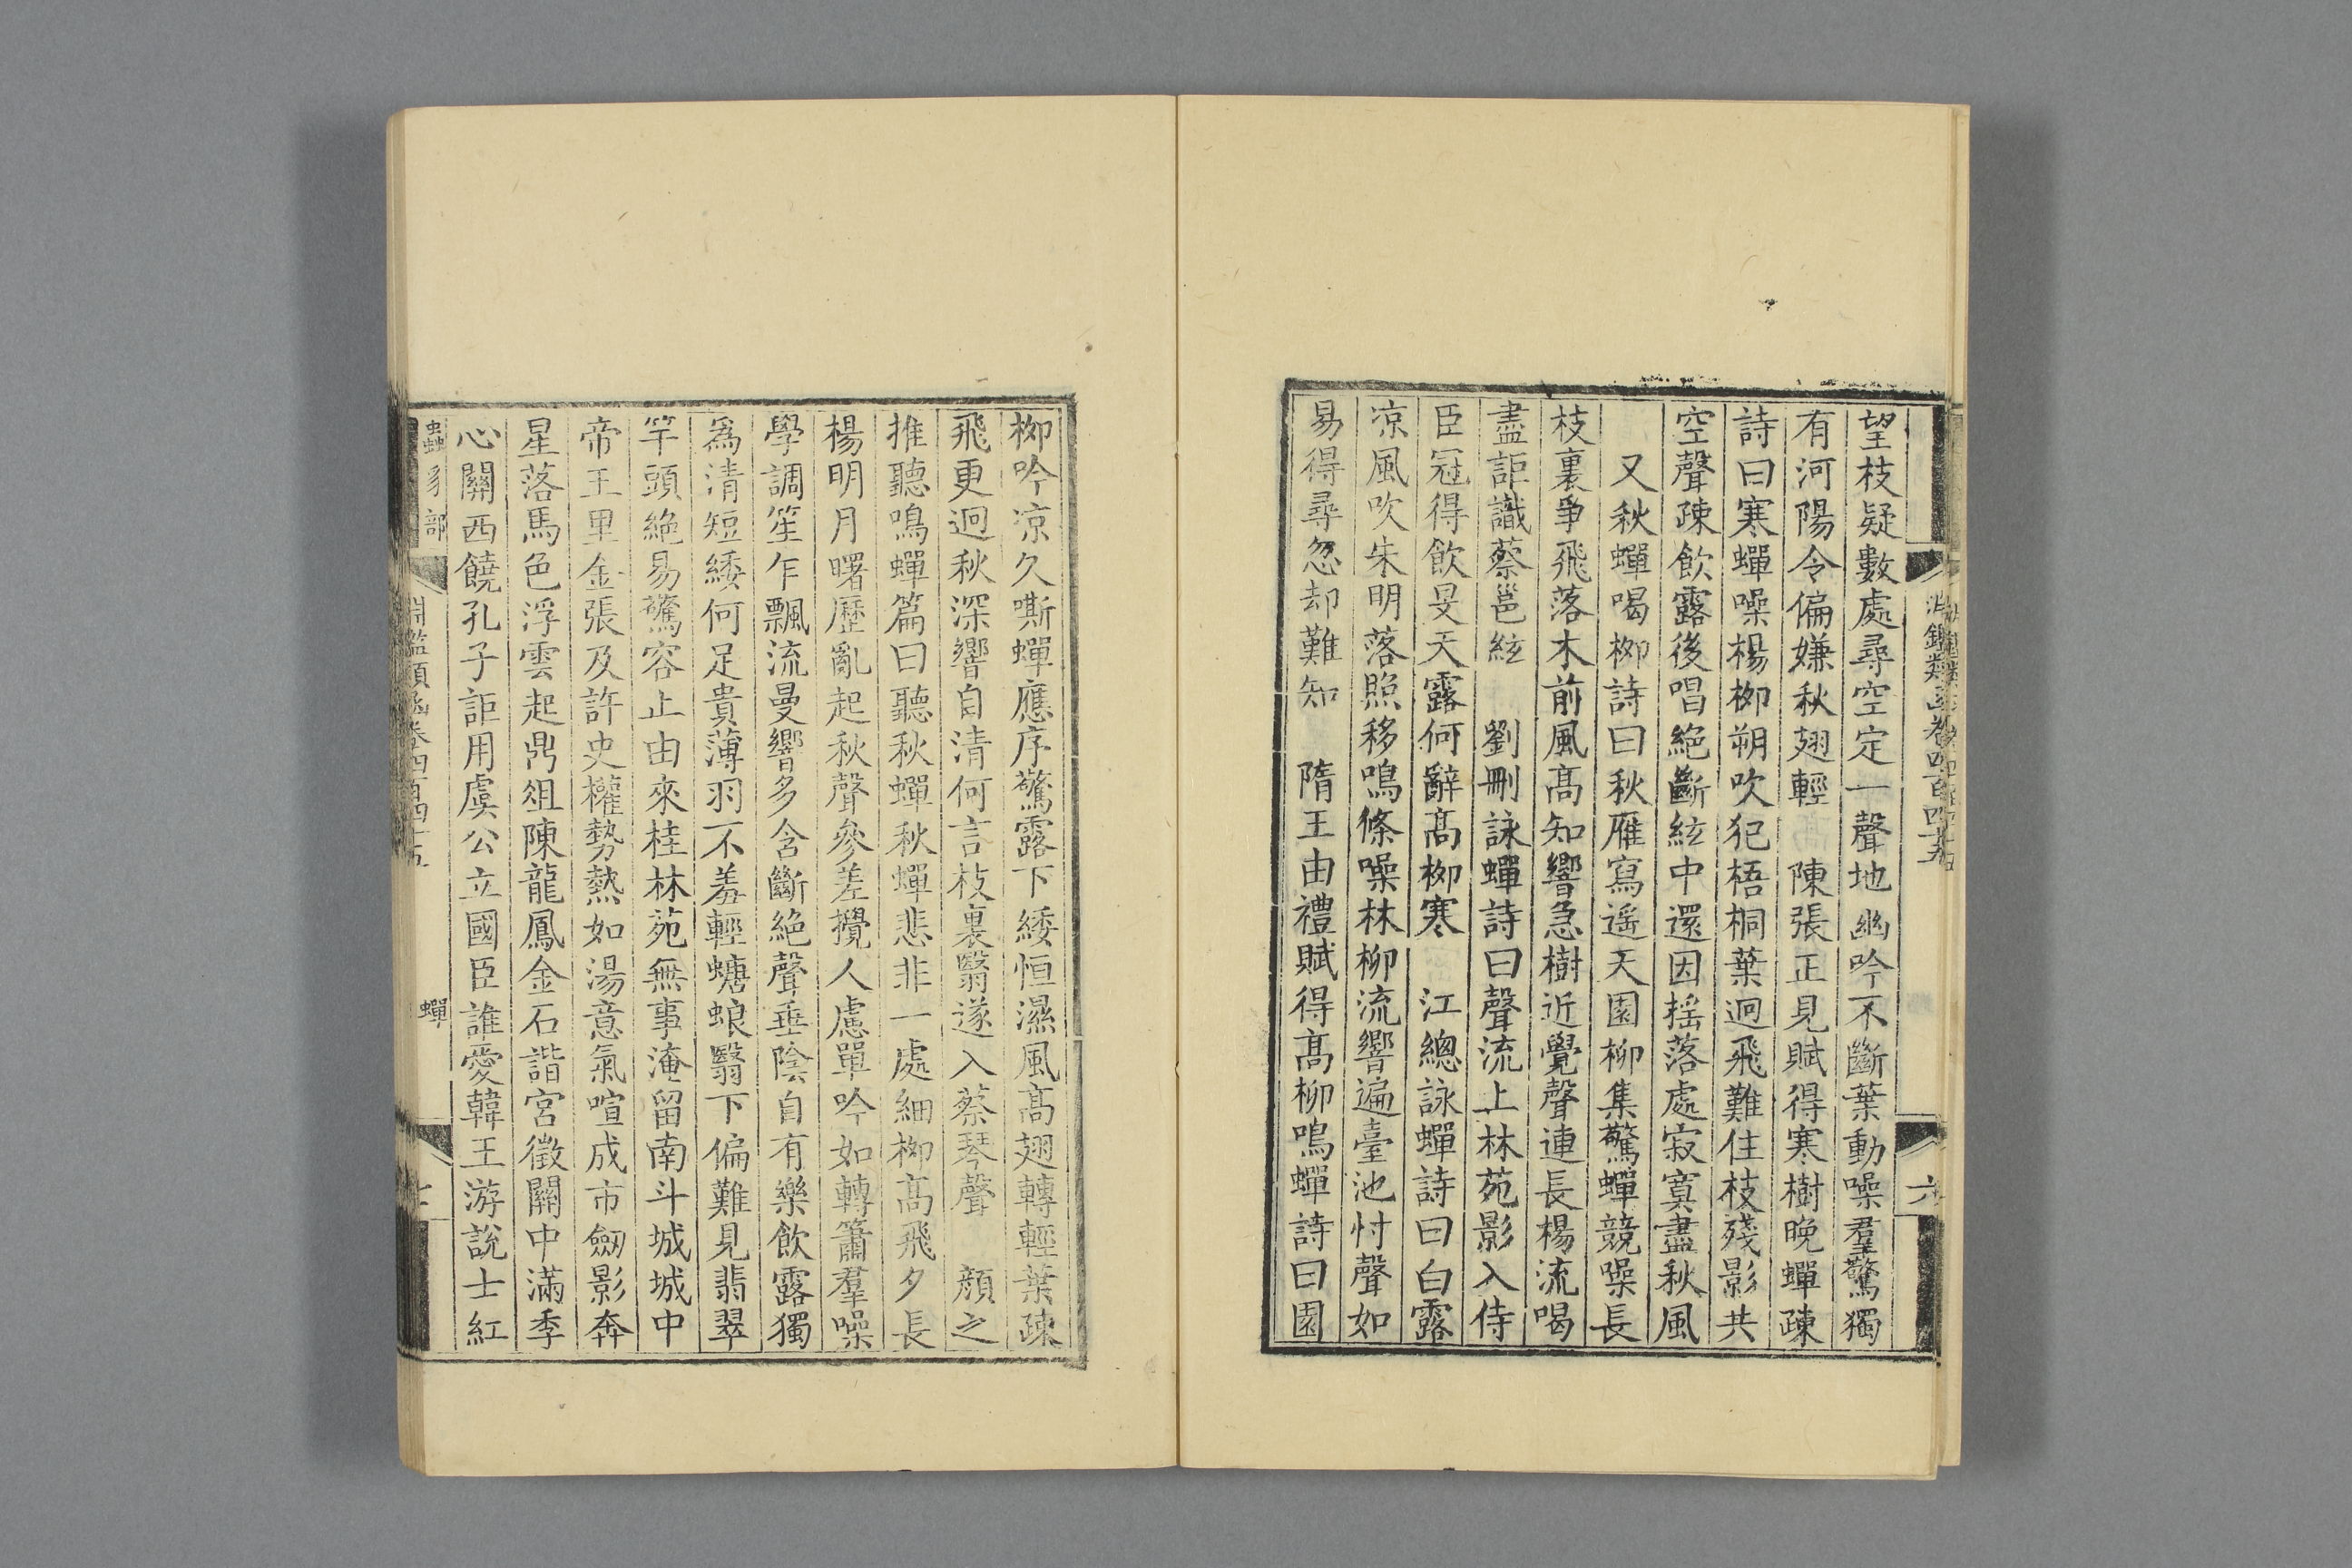 望枝疑數處尋空定一聲地幽吟不斷葉動噪羣驚獨
有河陽令偏嫌秋翅輕　陳張正見賦得寒樹晚蟬疎
詩曰寒蟬噪楊栁朔吹犯梧桐葉迥飛難住枝殘影共
空聲疎飲露後唱絕斷絃中還因揺落處寂寞盡秋風
又秋蟬喝栁詩曰秋雁寫遥天園柳集驚蟬競噪長
枝裏爭飛落木前風髙知響急樹近覺聲連長楊流喝
盡詎識蔡邕絃　劉刪詠蟬詩曰聲流上林苑影入侍
臣冠得飲旻天露何辭髙栁寒　江總詠蟬詩曰白露
凉風吹朱明落照移鳴條噪林柳流響遍臺池忖聲如
易得尋忽却難知　隋王由禮賦得髙柳鳴蟬詩曰園
六
栁吟凉久嘶蟬應序驚露下綏恒濕風髙翅轉輕葉疎
飛更迥秋深響自清何言枝裏翳遂入蔡琴聲　顔之
推聽鳴蟬篇曰聽秋蟬秋蟬悲非一處細栁髙飛夕長
楊明月曙歴亂起秋聲參差攪人慮單吟如轉簫羣噪
學調笙乍飄流曼響多含斷絶聲垂陰自有樂飲露獨
爲清短緌何足貴薄羽不羞輕螗蜋翳下偏難見翡翠
竿頭絶易驚容止由來桂林苑無事淹留南斗城城中
帝王里金張及許史權勢熱如湯意氣喧成市劔影奔
星落馬色浮雲起鼎俎陳龍鳳金石諧宮徵關中滿季
心關西饒孔子詎用虞公立國臣誰愛韓王游說士紅
蟲豸部　淵鑑類函卷四百四十五　蟬　七